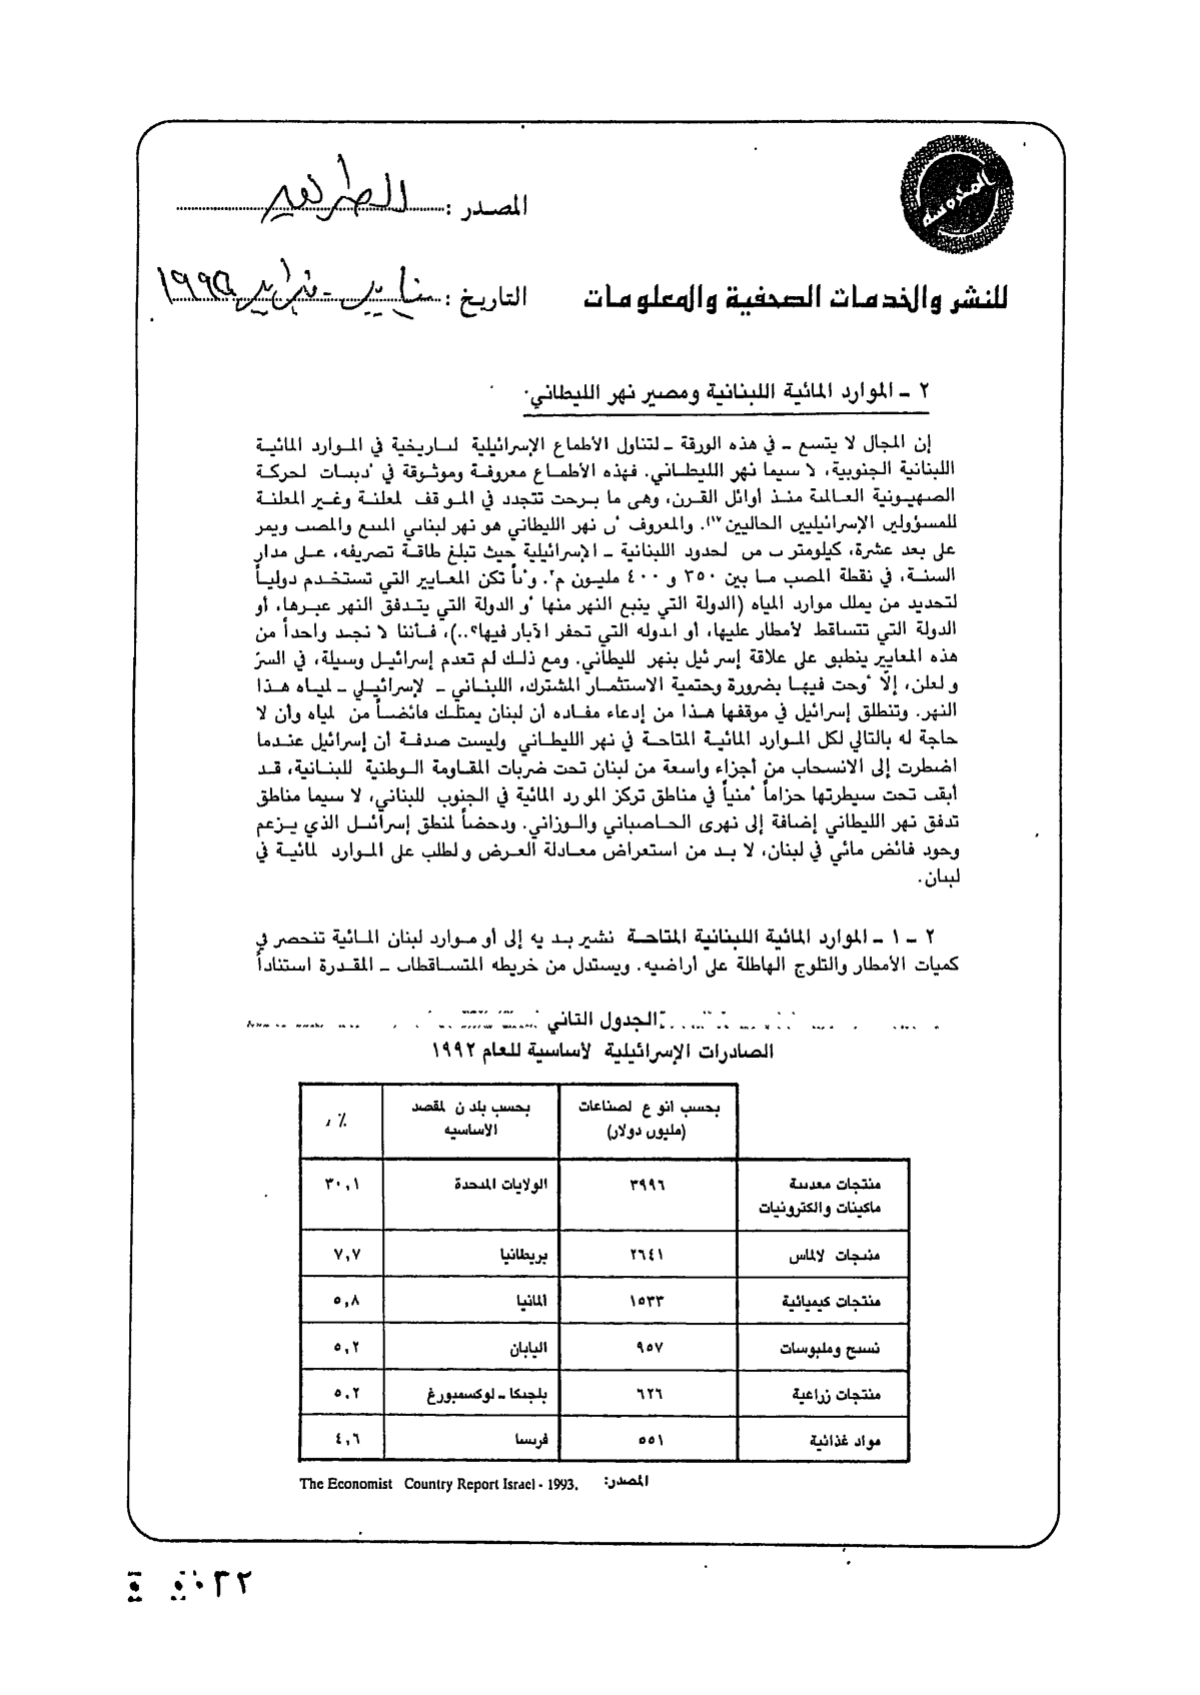 المعلومات
المصدر : الطريق
للنشر والخدمات الصحفية والمعلومات
التاريخ : يناير - فبراير
٢ ـ الموارد المائية اللبنانية ومصير نهر الليطاني.
إن المجال لا يتسع ـ في هذه الورقة ـ لتناول الأطماع الإسرائيلية في الموارد المائية
اللبنانية الجنوبية، لا سيما نهر الليطاني. فهذه الأطماع معروفة وموثوقة في دبيات لحركة
الصهيونية العالمة منذ أوائل القرن، وهى ما برحت تتجدد في المو قف لمعلنة وغير المعلنة
للمسؤولين الإسرائيليين الحاليين. والمعروف ن نهر الليطاني هو نهر لبناني المنبع والمصب ويمر
على بعد عشرة، كيلومتر ت من لحدود اللبنانية ـ الإسرائيلية حيث تبلغ طاقة تصريفه، على مدار
السنة، في نقطة المصب ما بين ٣٥٠ و ٤٠٠ مليون م٣. و ياً تكن المعايير التي تستخدم دولياً
لتحديد من يملك موارد المياه (الدولة التي ينبع النهر منها و الدولة التي يتدفق النهر عبرها، أو
الدولة التي تتساقط لأمطار عليها، أو الدوله التي تحفر الآبار فيها؟..)، فأننا لا نجد واحداً من
هذه المعايير ينطبق على علاقة إسر ئيل بنهر لليطاني. ومع ذلك لم تعدم إسرائيل وسيلة، في السرّ
و لعلن، إلّا وحت فيها بضرورة وحتمية الاستثمار المشترك، اللبناني ـ لإسرائيلي ـ لمياه هذا
النهر. وتنطلق إسرائيل في موقفها هذا من إدعاء مفاده أن لبنان يمتلك فائضاً من لمياه وأن لا
حاجة له بالتالي لكل الموارد المائية المتاحة في نهر الليطاني وليست صدفة أن إسرائيل عندما
اضطرت إلى الانسحاب من أجزاء واسعة من لبنان تحت ضربات المقاومة الوطنية للبنانية، قد
أبقت تحت سيطرتها حزاماً منياً في مناطق تركز المو رد المائية في الجنوب للبناني، لا سيما مناطق
تدفق نهر الليطاني إضافة إلى نهرى الحاصباني والوزاني. ودحضاً لمنطق إسرائيل الذي يزعم
وجود فائض مائي في لبنان، لا بد من استعراض معادلة العرض و لطلب على الموارد لمائية في
لبنان.
٢ ـ ١ ـ الموارد المائية اللبنانية المتاحة نشير بد يه إلى أو موارد لبنان المائية تنحصر في
كميات الأمطار والثلوج الهاطلة على أراضيه. ويستدل من خريطه المتساقطات ـ المقدرة استناداً
الجدول الثاني
الصادرات الإسرائيلية لأساسية للعام ١٩٩٢
بحسب انو ع لصناعات (مليون دولار) بحسب بلد ن لمقصد الأساسيه ٪
منتجات معدنية ماكينات والكترونيات ٣٩٩٦ الولايات المتحدة ٣٠,١
منتجات لالماس ٢٦٤١ بريطانيا ٧,٧
منتجات كيميائية ١٥٣٣ المانيا ٥,٨
نسيج وملبوسات ٩٥٧ اليابان ٥,٢
منتجات زراعية ٦٢٦ بلجيكا ـ لوكسمبورغ ٥,٢
مواد غذائية ٥٥١ فرنسا ٤,٦
المصدر: The Economist Country Report Israel - 1993.